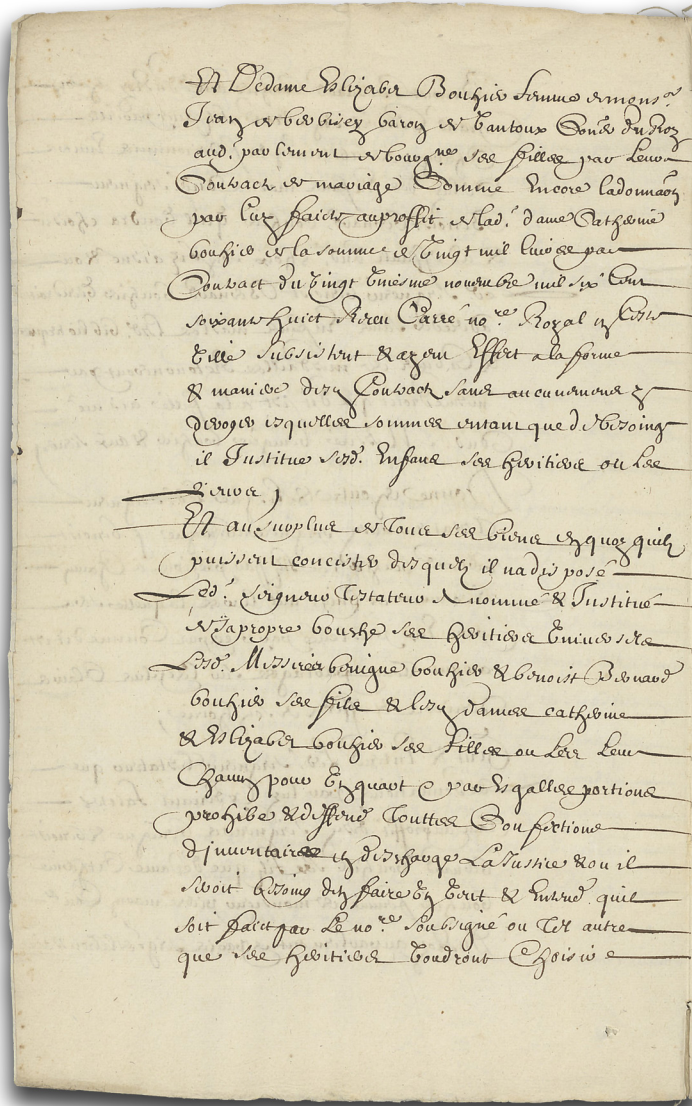 Et Dedame Eslizabet Bouhier femme de mons.r
Jean de berbisey baron de Vantoux Con.er du Roy
aud. parlement de bourg.ne ses filles par Leurs
Contract de mariage Comme Encore la donnaõn
par luy faicte au proffit de lad. dame Catherine
bouhier de la somme de Vingt mil livres par
Contract du Vingt Uniesme novembre mil six Cent
soixante huict Receu Carré no.re Royal en ceste
Ville subsistent & ayent Effect a la forme
& maniere desd Contractz sans aucunement y
deroger esquelles sommes entant que de besoing
il Institue sesd. Enfans ses heritiers ou Les
siens
Et au surplus de Tous ses biens en quoy quilz
puissent concister desquelz il na disposé
Led. seigneur Testateur A nommé & Institué
de sa propre bouche ses heritiers Universelz
Lesd. Messires benigne bouhier & benoist Bernard
bouhier ses filz & lesd dames catherine
& Eslizabet bouhier ses filles ou Les Leurs
Chacun pour Un quart & par Esgalles portions
prohibe & deffend Touttes Confections
d'inventaires en descharge La Justice & ou il
seroit besoing den faire Un Veut & Entend quil
soit faict par Le no.re soubsigné ou Tel autre
que ses heritiers Voudront Choisir